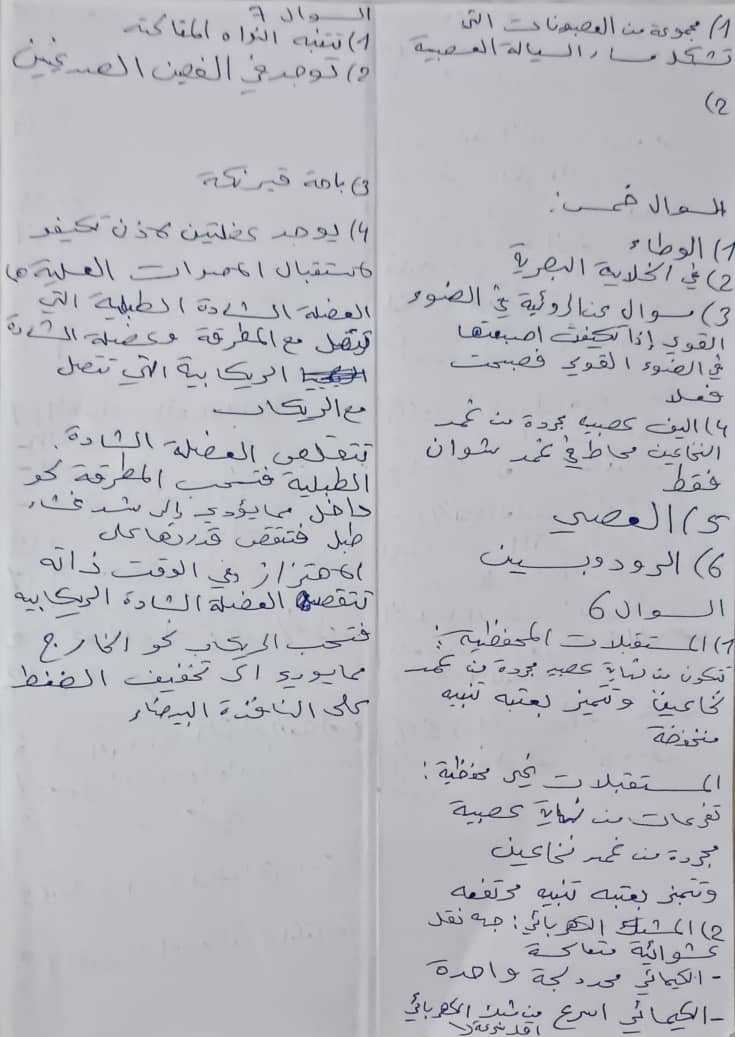 1) مجموعة من العصبونات التي
تشكل مسار السيالة العصبية
2)
السوال خمس:
1) الوطاء
2) في الخلاية البصرية
3) سوال عن الروئية في الضوء
القوي إذا تكيفت اصبعتها
في الضوء القوي فصبحت
فعلا
4) اليف عصبيه مجردة من غمد
النخاعين محاط في غمد شوان
فقط
5) العصي
6) الرودوبسين
السوال 6
1) المستقبلات المحفظية:
تتكون من نهاية عصبيه مجردة من غمد
نخاعين وتتميز بعتبه تنبيه
منخفضة
المستقبلات غير محفظية:
تفرعات من نهاية عصبية
مجردة من غمد نخاعين
وتتميز بعتبه تنبيه مرتفعه
2) المشبك الكهربائي: جه نقد
عشوائية متعاكسة
- الكيمائي محدد لجة واحدة
- الكيمائي اسرع من مشبك الكهربائي
السوال 7
1) تتنبه النواه المتفاكته
2) توجد في الفصين الصدغيين
3) باحة فيرنكة
4) يوجد عضلتين لاذن تكيفو
لاستقبال الاصوات العلية
العضلة الشادة الطبلية التي
تتصل مع المطرقة وعضلة الشادة
الركابية التي تتصل
مع الركاب
تتقلص العضلة الشادة
الطبلية فتسحب المطرقة نحو
داخل مما يؤدي إلى شد غشاء
طبل فتنقص قدرتها على
الاهتزاز وفي الوقت ذاته
تتقصه العضلة الشادة الركابيه
فتسحب الركاب نحو الخارج
مما يودي الى تخفيف الضغط
على النافذة البيضاء